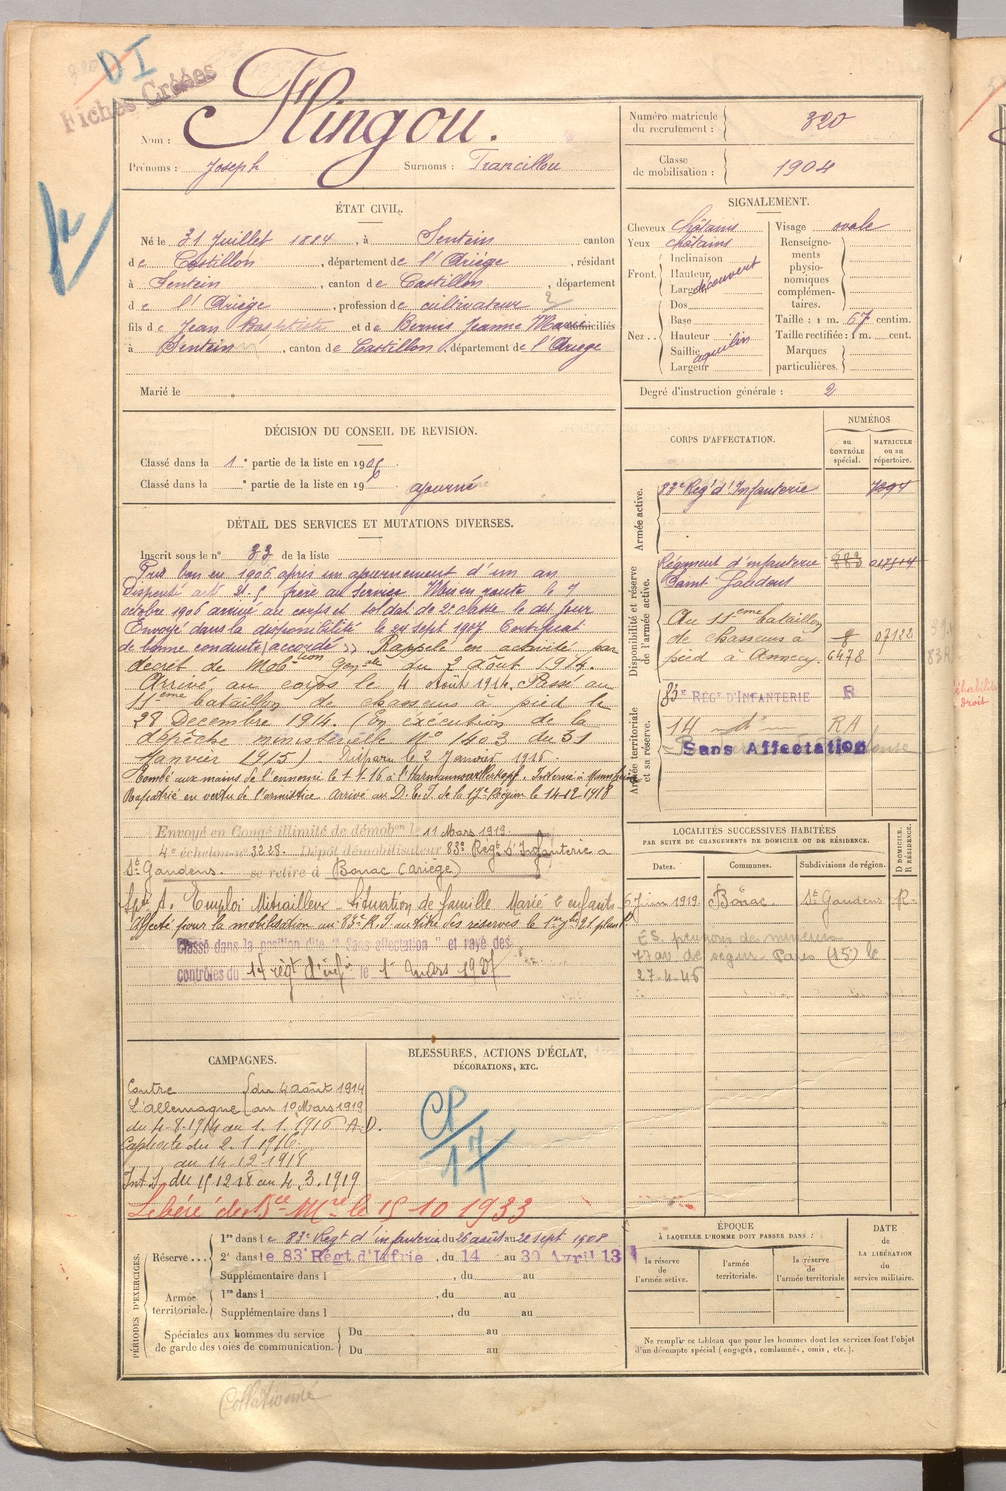 DI
Fiches Créées
Nom : Hingou.
Prénoms : Joseph Surnoms : Francillou
Numéro matricule du recrutement : 320
Classe de mobilisation : 1904
ÉTAT CIVIL.
Né le 31 Juillet 1884, à Sentein canton
de Castillon, département de l'Ariège, résidant
à Sentein, canton de Castillon, département
de l'Ariège, profession de cultivateur
fils de Jean Baptiste et de Bernis Jeanne Marie domiciliés
à Sentein, canton de Castillon, département de l'Ariège
Marié le
SIGNALEMENT.
Cheveux châtains
Yeux châtains
Front. Inclinaison
Hauteur
Largeur
découvert
Nez.. Dos
Base
Hauteur
Saillie
Largeur
aquilin
Visage ovale
Renseignements physionomiques complémentaires.
Taille : 1 m. 67 centim.
Taille rectifiée : 1 m. cent.
Marques particulières.
Degré d'instruction générale : 2
DÉCISION DU CONSEIL DE REVISION.
Classé dans la 1e partie de la liste en 1906.
Classé dans la e partie de la liste en 190 ajourné
DÉTAIL DES SERVICES ET MUTATIONS DIVERSES.
Inscrit sous le n° 33 de la liste
Pris bon en 1906 après un ajournement d'un an
Dispensé art. 21. § frère au Service. Mis en route le 7
octobre 1906 arrivé au corps et soldat de 2e classe le dit jour
Envoyé dans la disponibilité le 24 sept 1907 Certificat
de bonne conduite accordé. Rappelé en activité par
décret de Mobtion Génale du 2 Août 1914.
Arrivé au corps le 4 Août 1914. Passé au
11eme bataillon de chasseurs à pied le
28 Décembre 1914. (En exécution de la
dépêche ministérielle N° 1403 du 31
Janvier 1915). Disparu le 2 Janvier 1916.
Tombé aux mains de l'ennemi le 1.1.16 à l'Hartmannswillerkopf. Interné à Mannheim
Rapatrié en vertu de l'armistice. Arrivé au D.E.T. de la 17e Région le 14-12-1918
Envoyé en Congé illimité de démobon le 11 Mars 1919.
4e échelon n° 3238. Dépôt démobilisateur 83e Régt d'Infanterie à
St Gaudens. se retire à Bonac (Ariège)
Emploi Mitrailleur - Situation de famille Marié 6 enfants
Affecté pour la mobilisation au 83e R.I.
Classé dans la position dite "Sans affectation" et rayé des
contrôles du 14 régt d'infie le 1 mars 192
CORPS D'AFFECTATION.
NUMÉROS
au CONTRÔLE spécial.
MATRICULE ou au répertoire.
Armée active.
83e Régt d'Infanterie 7394
Disponibilité et réserve de l'armée active.
Régiment d'infanterie
Saint Gaudens
Au 11eme bataillon
de chasseurs à 07122
pied à Annecy. 6478
Armée territoriale et sa réserve.
83e RÉGT D'INFANTERIE R
14 d° RA
Sans Affectation
LOCALITÉS SUCCESSIVES HABITÉES
PAR SUITE DE CHANGEMENTS DE DOMICILE OU DE RÉSIDENCE.
Dates. Communes. Subdivisions de région. D DOMICILE. R RÉSIDENCE.
6 Juin 1919 Bonac St Gaudens R
77 av. de Ségur Paris (15) le
27-4-46
CAMPAGNES.
Contre l'Allemagne du 4 août 1914 au 10 Mars 1919
du 4-8-1914 au 1.1.1916 A.D.
Captivité du 2.1.1916
au 14-12-1918
Int. S. du 15 12 18 au 4.3.1919
BLESSURES, ACTIONS D'ÉCLAT,
DÉCORATIONS, ETC.
CP/17
Libéré de Sce Mre le 15 10 1933
PÉRIODES D'EXERCICES.
Réserve... 1re dans le 83e Régt d'infanterie du 26 août au 22 sept 1908
2e dans le 83 Régt. d'Infrie, du 14 au 30 Avril 13
Supplémentaire dans l , du au
Armée territoriale. 1re dans l , du au
Supplémentaire dans l , du au
Spéciales aux hommes du service de garde des voies de communication. Du au
Du au
ÉPOQUE
À LAQUELLE L'HOMME DOIT PASSER DANS :
la réserve de l'armée active.
l'armée territoriale.
la réserve de l'armée territoriale
DATE DE LA LIBÉRATION du service militaire.
Ne remplir ce tableau que pour les hommes dont les services font l'objet
d'un décompte spécial (engagés, condamnés, omis, etc.).
Collationné